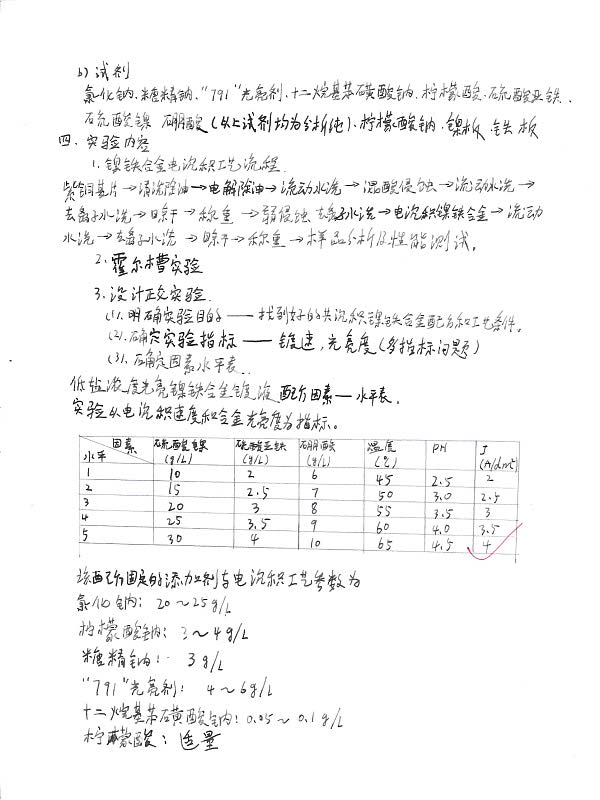 b) 试剂
氯化钠、糖精钠、"791"光亮剂、十二烷基苯磺酸钠、柠檬酸、硫酸亚铁、
硫酸镍 硼酸(以上试剂均为分析纯)、柠檬酸钠、镍板、铁板
四、实验内容
1. 镍铁合金电沉积工艺流程.
紫铜基片→清洗除油→电解除油→流动水洗→混酸侵蚀→流动水洗→
去离子水洗→晾干→称重→弱侵蚀 去离子水洗→电沉积镍铁合金→流动
水洗→去离子水洗→晾干→称重→样品分析及性能测试。
2. 霍尔槽实验
3. 设计正交实验.
(1). 明确实验目的——找到好的共沉积镍铁合金配方和工艺条件。
(2). 确定实验指标——镀速,光亮度(多指标问题)
(3). 确定因素水平表.
低盐浓度光亮镍铁合金镀液 配方因素—水平表.
实验以电沉积速度和合金光亮度为指标。
因素 硫酸镍 硫酸亚铁 硼酸 温度 PH J
水平 (g/L) (g/L) (g/L) (℃) (A/dm²)
1 10 2 6 45 2.5 2
2 15 2.5 7 50 3.0 2.5
3 20 3 8 55 3.5 3
4 25 3.5 9 60 4.0 3.5
5 30 4 10 65 4.5 4
该配方固定的添加剂与电沉积工艺参数为
氯化钠: 20~25g/L
柠檬酸钠: 3~4g/L
糖精钠: 3g/L
"791"光亮剂: 4~6g/L
十二烷基苯磺酸钠: 0.05~0.1g/L
柠檬酸: 适量